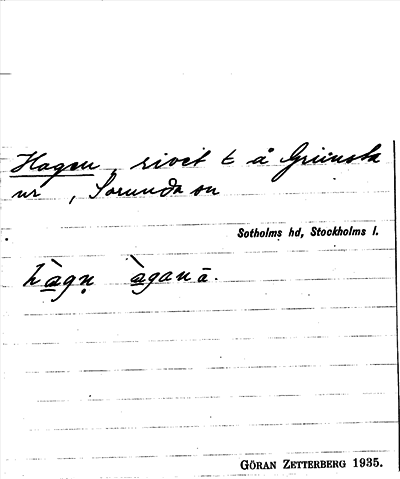 Hagen, rivet t å Grimsta
nr, Sorunda sn
Sotholms hd, Stockholms l.
hàgn̥ àganā.
GÖRAN ZETTERBERG 1935.